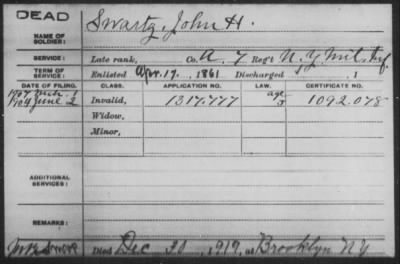 DEAD
NAME OF SOLDIER: Swartz, John H.
SERVICE: Late rank, Co. A. 7 Reg't N.Y. Mil. Inf.
TERM OF SERVICE: Enlisted Apr. 19, 1861 Discharged , 1
DATE OF FILING. CLASS. APPLICATION NO. LAW. CERTIFICATE NO.
1907 Mch. 1
1904 June 2 Invalid, 1317.777 age 1,092.078
Widow,
Minor,
ADDITIONAL SERVICES:
REMARKS:
Died Dec 20, 1919, at Brooklyn NY